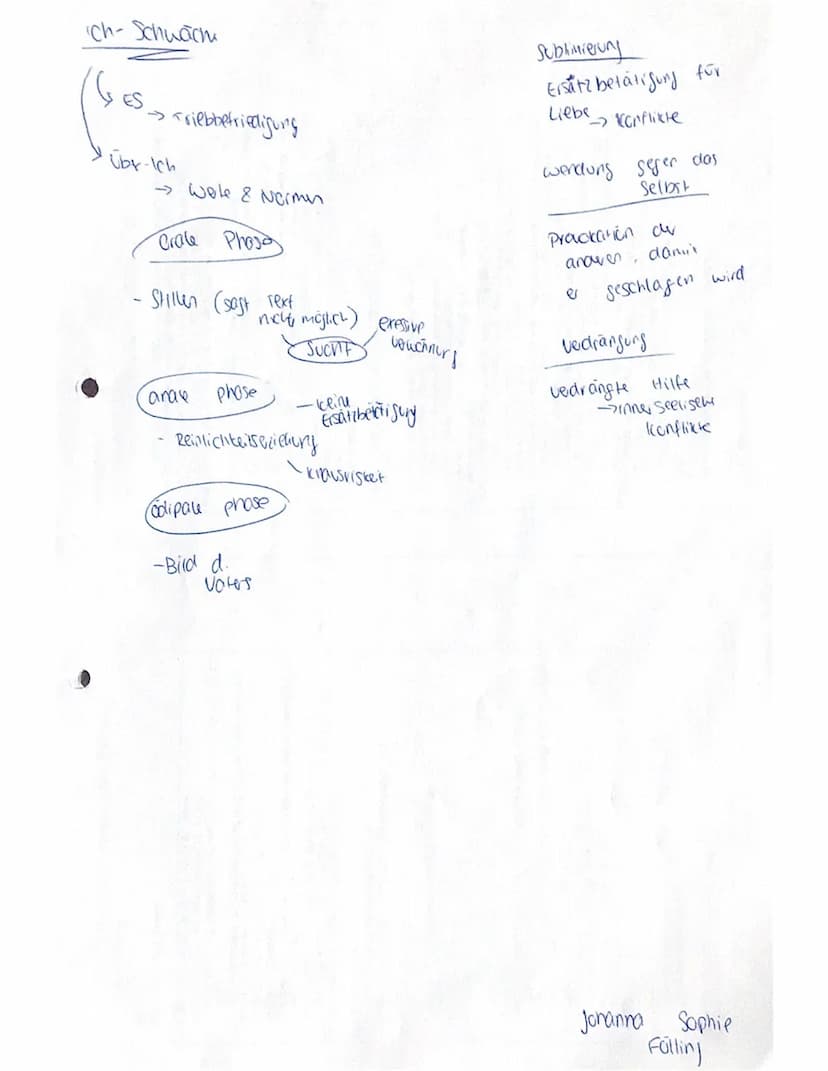 Ich-Schwäche
ES
→ Triebbefriedigung
Über-Ich
→ Werte & Normen
Orale Phase
- Stillen (sagt Text
nicht, möglich)
Sucht
Verwöhnung
anale phase
- keine
Ersatzbetätigung
- Reinlichkeitserziehung
ödipale phase
- Bild d.
Vaters
Sublimierung
Ersatzbetätigung für
Liebe → Konflikte
Wendung gegen das
Selbst
Provokation der
anderen, damit
er geschlagen wird
Verdrängung
verdrängte Hilfe
→ innerseelische
Konflikte
Johanna Sophie
Fülling